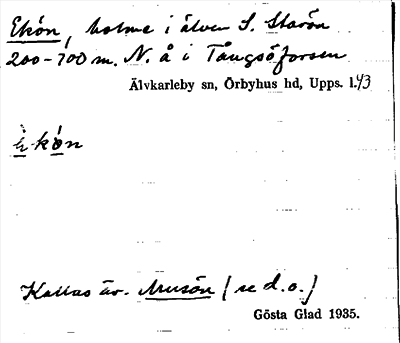 Ekön, holme i älven S. Starön
200-700 m. N. å i Tångsöforsen
Älvkarleby sn, Örbyhus hd, Upps. l. 43
è·kö̀n
Kallas äv. Musön (se d.o.)
Gösta Glad 1935.